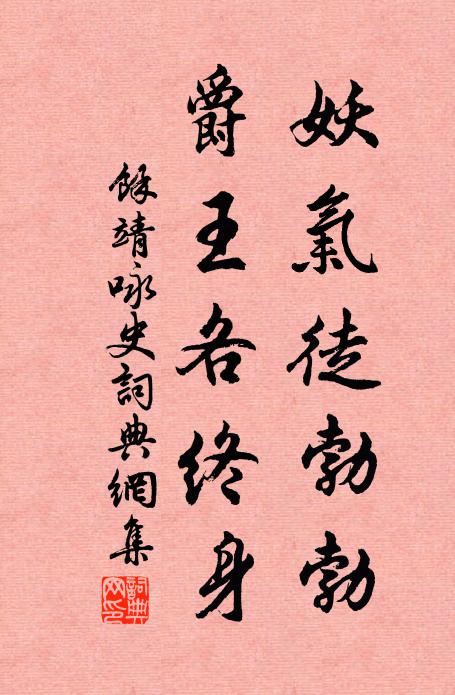 妖氣徒勃勃
爵王各終身
餘靖咏史詞典網集
詞典網印